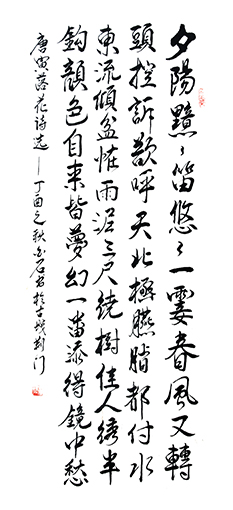 夕陽黯〻笛悠〻一霎春風又轉
頭控訴欲呼天北極臙脂都付水
東流傾盆怪雨泥三尺绕樹佳人绣半
鈎顏色自来皆夢幻一番添得鏡中愁
唐寅落花诗选丁酉之秋